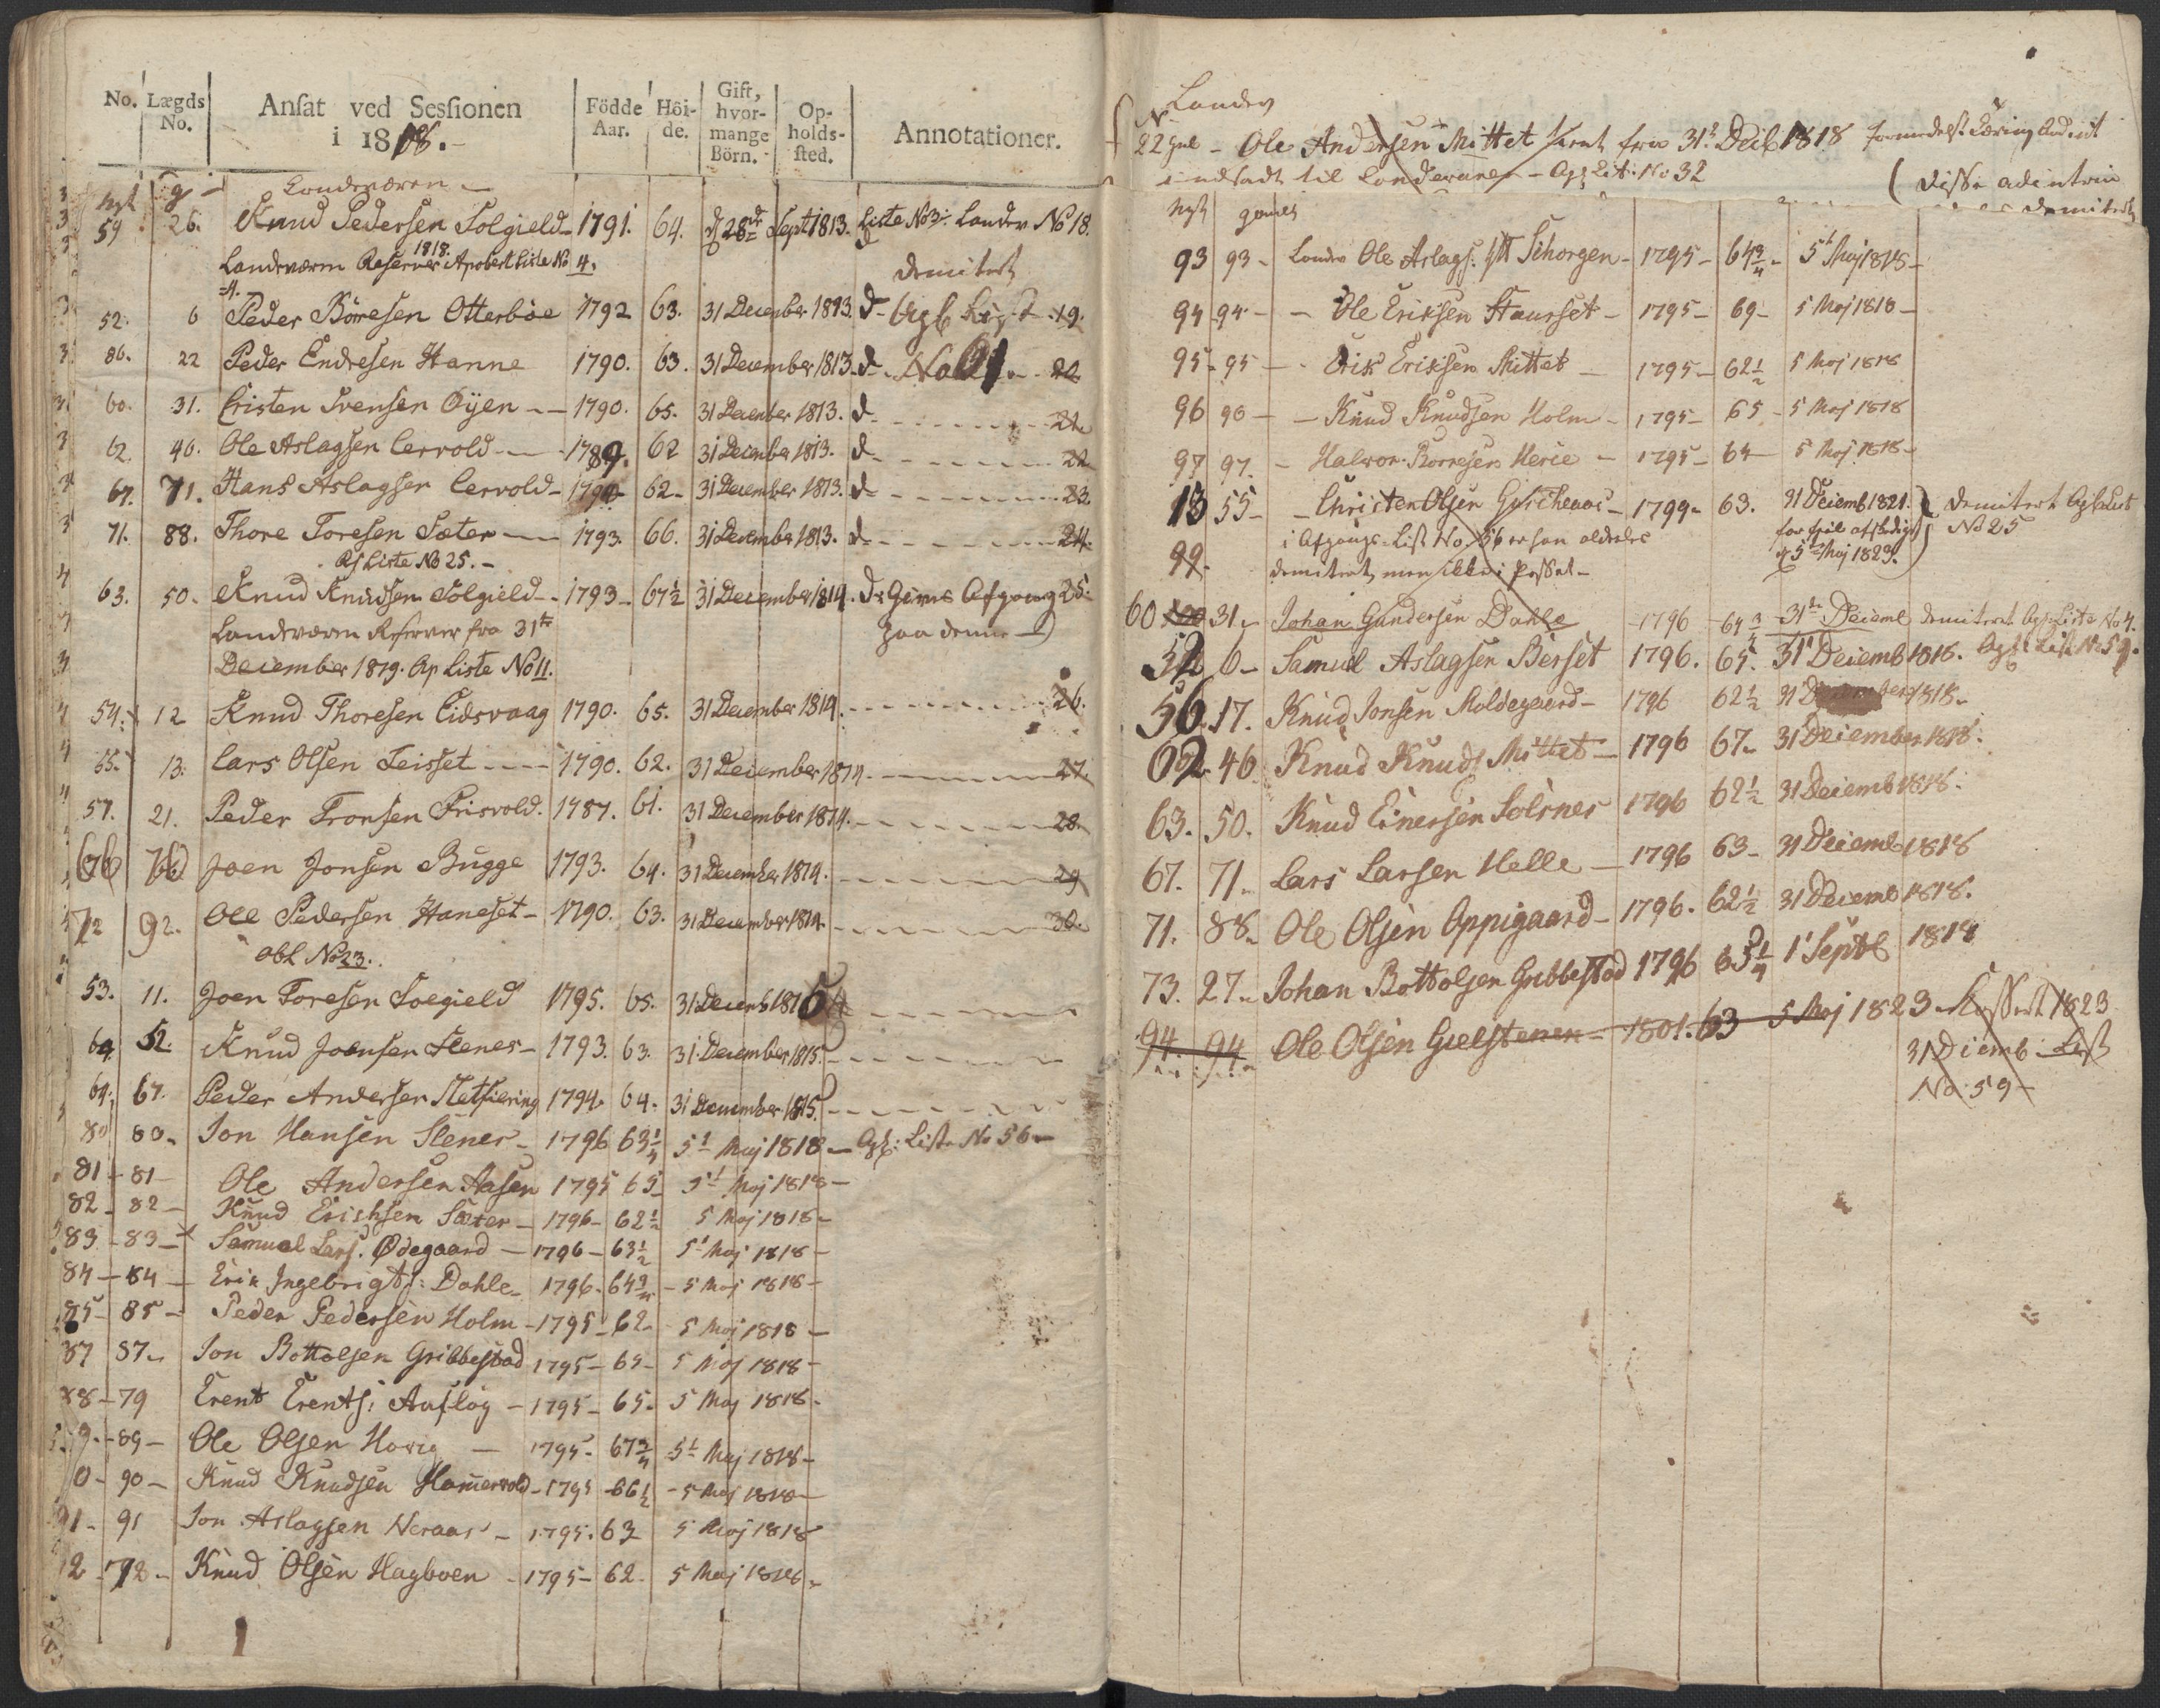 No. Lægds No. Ansat ved Sessionen i 1818. Födde Aar. Höide. Gift, hvormange Börn. Opholdssted. Annotationer.
nyt g Landværen
59 26. Knud Pedersen Solgield 1791. 64. d 28de Sept 1813. Liste No 3. Landev No 18.
Landværn Reserver 1818. Aprobert Liste No 4. demitert
52. 6 Peder Börresen Otterböe 1792 63. 31 December 1813. d- Afg. List 19.
86. 22 Peder Endresen Hanne 1790. 63. 31 December 1813. d- No 61. 20
60. 31. Cristen Svensen Öÿen 1790. 65. 31 December 1813. d- 21.
62. 46. Ole Aslagsen Lervold 1789. 62 31 December 1813. d- 22
67. 71. Hans Aslagsen Lervold 62 31 December 1813. d- 23.
71. 88. Thore Toresen Sæter 1793. 66. 31 December 1813. d- 24.
Af Liste No 25.
63. 50. Knud Knudsen Solgield 1793 67½ 31 December 1814. d- Gives Afgang 25.
Landværn Reserver fra 31te paa denne
December 1819. Ap Liste No 11.
54. 12 Knud Thoresen Eidsvaag 1790. 65. 31 December 1814. 26.
55. 13. Lars Olsen Teisset 1790. 62. 31 December 1814. 27.
57. 21. Peder Tronsen Frisvold. 1787. 61. 31 December 1814. 28.
66 Joen Jonsen Bugge 1793. 64. 31 December 1814. 29
72 92. Ole Pedersen Haneset 1790. 63. 31 December 1814. 30.
obl No 23.
53. 11. Joen Toresen Soegield 1795. 65. 31 Decemb 181
64. 52. Knud Joensen Stenes 1793. 63. 31 December 1815.
64. 67. Peder Andersen Sletfiering 1794. 64. 31 December 1815.
80 80. Jon Hansen Stenes 1796 63¼ 5t Maj 1818 Afg: Liste No 56
81 - 81 Ole Andersen Aasen 1795 65 5t Maj 1818
82 - 82 Knud Erichsen Sæter 1796 62½ 5 Maj 1818
83 - 83 Samuel Lars. Ødegaard 1796 63½ 5t Maj 1818
84 - 84 Erik Ingebrigts: Dahle 1796. 64¾ 5 Maj 1818
85 - 85 Peder Pedersen Holm 1795 62 5 Maj 1818
87 87. Jon Bottolsen Gribbestad 1795 65 5 Maj 1818
88 - 79 Erent Erents: 1795 65. 5 Maj 1818
9. - 89 Ole Olsen Hovig 1795. 67¾ 5t Maj 1818
0 - 90 Knud Knudsen Hamervold 1795 66½ 5 Maj 1818
91 - 91 Jon Aslagsen Neraas 1795. 63 5 Maj 1818
2 - 92 Knud Olsen Hagboen 1795 62 5 Maj 1818
Landev
N
22 Ole Andersen Mittet fra 31t Decb 1818 formedelst
indsadt til Landeværnet - Afg. Lit: No 32
( disse
demitert
Nyt gamelt
93 93 Landev Ole Aslags. 1795 64¾ 5t Maj 1818
94 94 Ole Eriksen Staurset 1795 69 5 Maj 1818
95 95 Erik Eriksen Mittet 1795 62½ 5 Maj 1818
96 96 Knud Knudsen Holm 1795 65 5 Maj 1818
97 97. Halvor Börresen Herie 1795 64 5 Maj 1818
13 55 Christen Olsen 1799 63. 31 Decemb 1821. demitert
i Afgangs-List No 56 er han alderles No 25
99. demitert men ikke i d 5 Maj 1823.
60 31. Johan Gundersen Dahle 1796 64¾ 31te Decemb demitert Afg. Liste No 4.
52 6 Samuel Aslagsen Berset 1796. 65. 31 Decemb 1818. Afg: List No 59.
56. 17. Knud Jonsen Moldegaard 1796 62½ 31 December 1818.
62. 46 Knud Knuds. Mittet 1796 67. 31 December 1818.
63. 50. Knud Einersen Solsnes 1796 62½ 31 Decemb 1818.
67. 71. Lars Larsen Helle 1796 63 31 Decemb 1818
71. 88. Ole Olsen Oppigaard 1796. 62½ 31 Decemb 1818.
73. 27. Johan Bottolsen Gribbestad 1796 63¼ 1t Septb 1818
94. 94 Ole Olsen Gielstenen 1801. 63 5 Maj 1823 1823
31 Decemb List
No 59